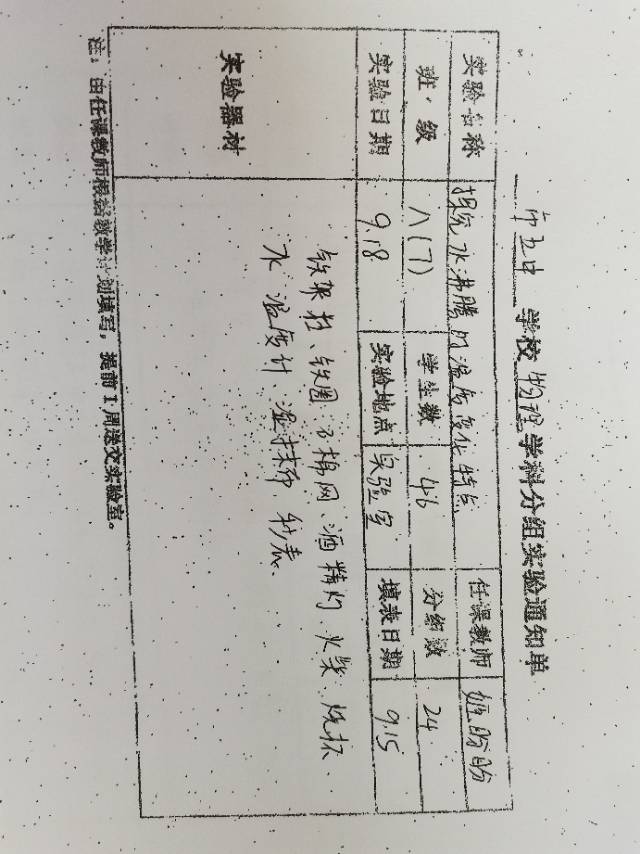 市五中 学校 物理 学科分组实验通知单
实验名称 探究水沸腾时温度变化特点 任课教师 姬盼盼
班级 八(7) 学生数 46 分组数 24
实验日期 9.18 实验地点 实验室 填表日期 9.15
实验器材 铁架柱、铁圈、石棉网、酒精灯、火柴、烧杯、
水、温度计、湿抹布、秒表、
注：由任课教师根据教学计划填写，提前1周送交实验室。